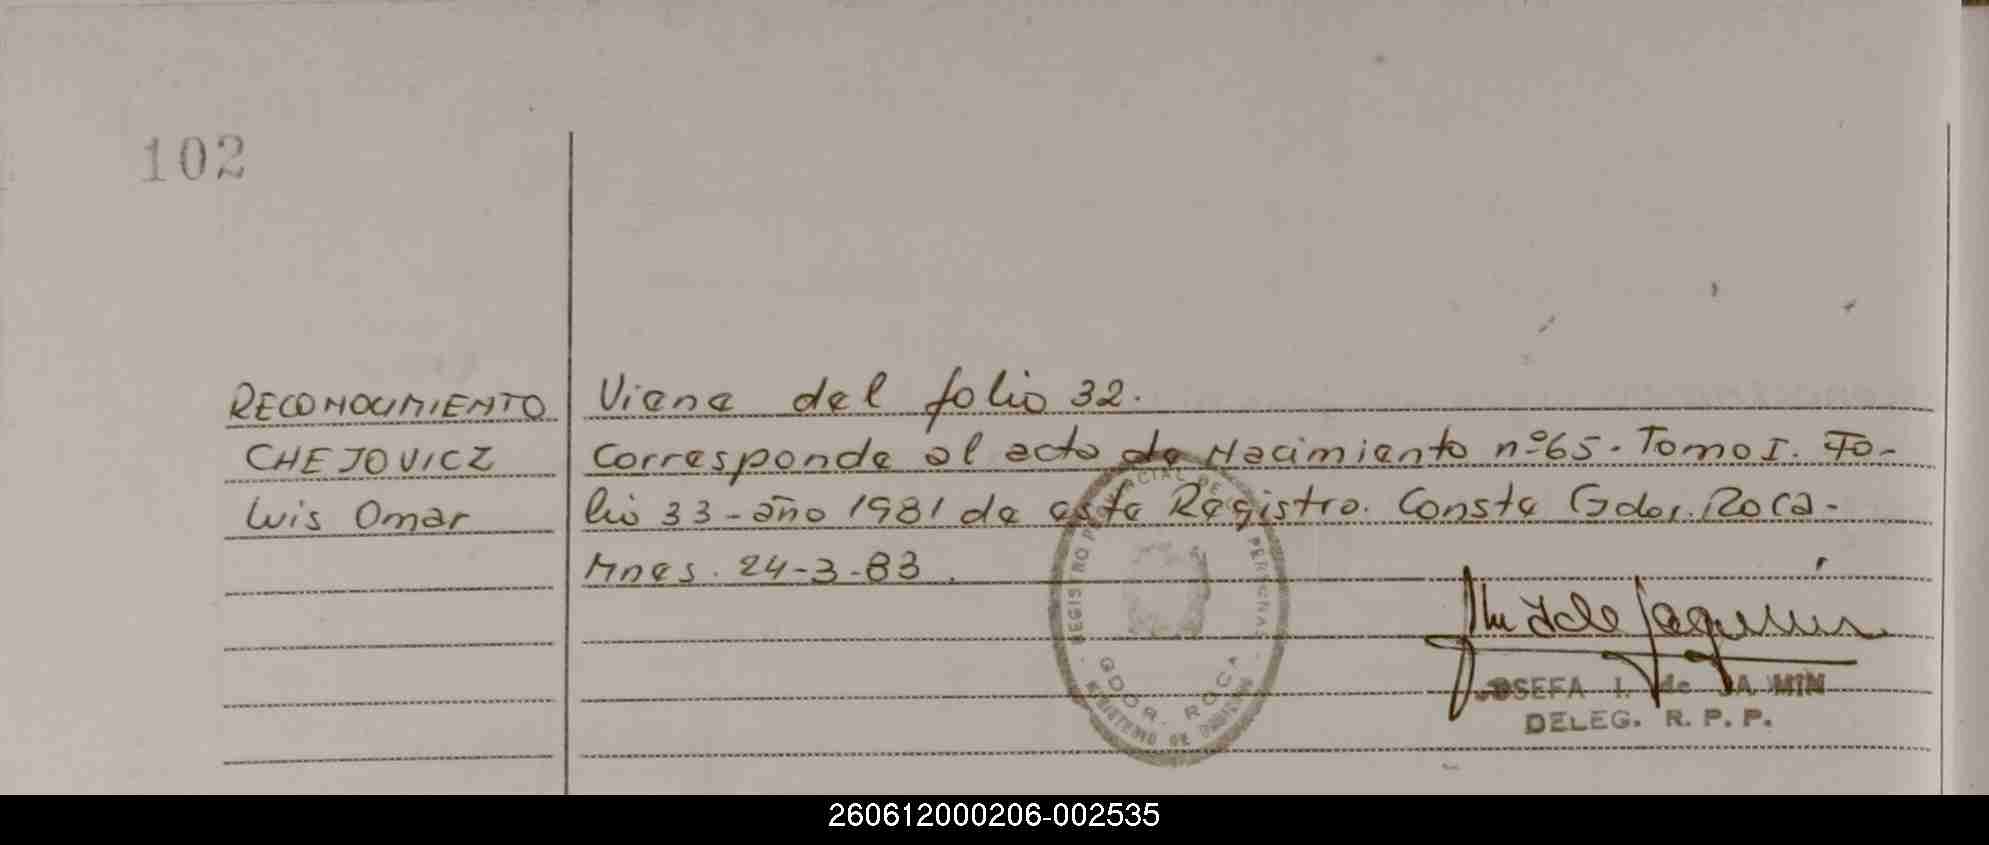 102
RECONOCIMIENTO
CHEJOVICZ
Luis Omar
Viene del folio 32.
Corresponde al acta de Nacimiento nº65. Tomo I. Fo-
lio 33 - año 1981 de este Registro. Conste Gdor. Roca -
Mnes. 24-3-83.
REGISTRO PROVINCIAL DE LAS PERSONAS
GDOR. ROCA
JOSEFA I. de
DELEG. R. P. P.
260612000206-002535